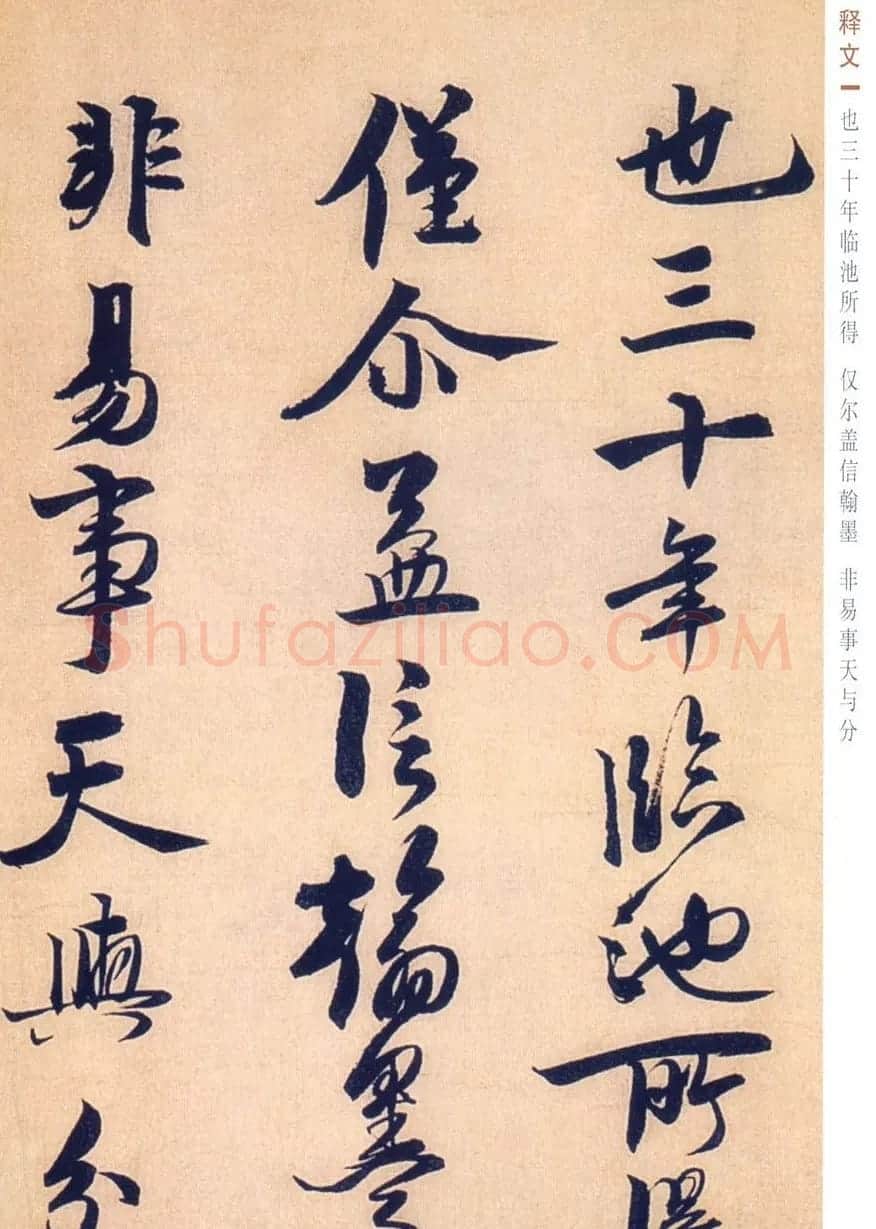 也三十年臨池所得
僅尒盖信翰墨
非易事天與分
释文
也三十年临池所得 仅尔盖信翰墨 非易事天与分
Shufaziliao.COM